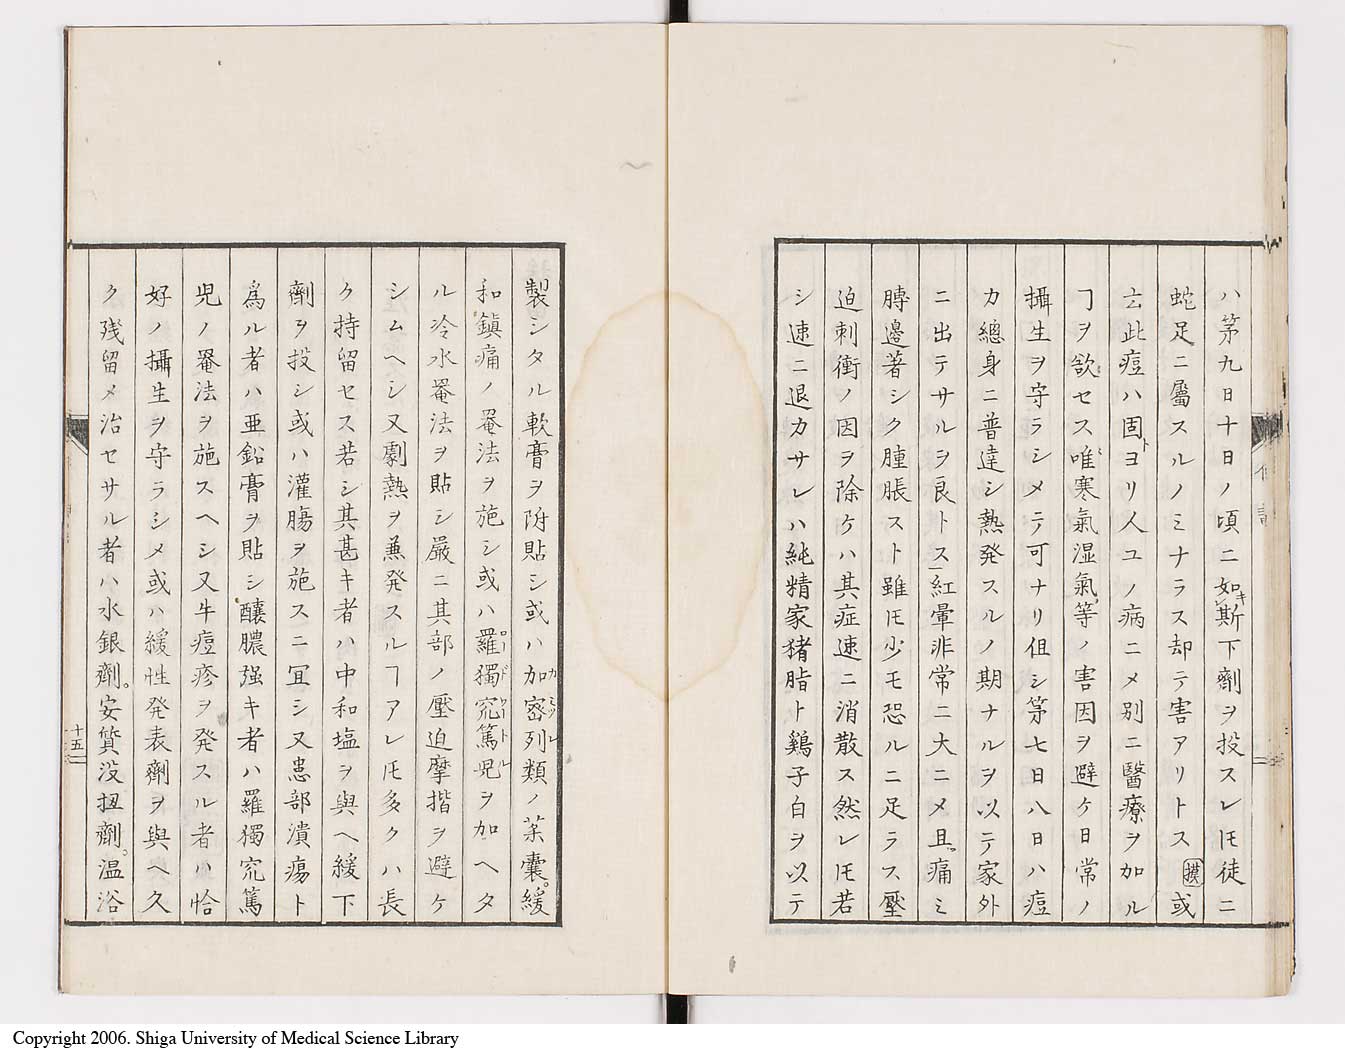 ハ第九日十日ノ頃ニ如キ斯下劑ヲ投スレ𪜈徒ニ
蛇足ニ屬スルノミナラス却テ害アリトス 撲 或
云此痘ハ固ヨリ人ユノ病ニメ別ニ醫療ヲ加ル
ヿヲ欲セス唯寒氣湿氣等ノ害因ヲ避ケ日常ノ
攝生ヲ守ラシメテ可ナリ但シ第七日八日ハ痘
カ總身ニ普達シ熱発スルノ期ナルヲ以テ家外
ニ出テサルヲ良トス紅暈非常ニ大ニメ且痛ミ
膊邊著シク腫脹スト雖𪜈少モ恐ルニ足ラス壓
迫刺衝ノ因ヲ除ケハ其症速ニ消散ス然レ𪜈若
シ速ニ退カサレハ純精家猪脂ト鷄子白ヲ以テ
製シタル軟膏ヲ附貼シ或ハ加密列類ノ茱嚢。緩
和鎮痛ノ罨法ヲ施シ或ハ羅獨究篤児ヲ加ヘタ
ル冷水罨法ヲ貼シ嚴ニ其部ノ壓迫摩揩ヲ避ケ
シムヘシ又劇熱ヲ兼発スルヿアレ𪜈多クハ長
ケ持留セス若シ其甚キ者ハ中和塩ヲ與ヘ緩下
劑ヲ投シ或ハ灌腸ヲ施スニ冝シ又患部潰瘍ト
爲ル者ハ亜鉛膏ヲ貼シ釀膿强キ者ハ羅獨究篤
児ノ罨法ヲ施スヘシ又牛痘疹ヲ発スル者ハ恰
好ノ攝生ヲ守ラシメ或ハ緩性発表劑ヲ與ヘ久
ク残留メ治セサル者ハ水銀劑。安質没扭劑。温浴
十五
Copyright 2006. Shiga University of Medical Science Library